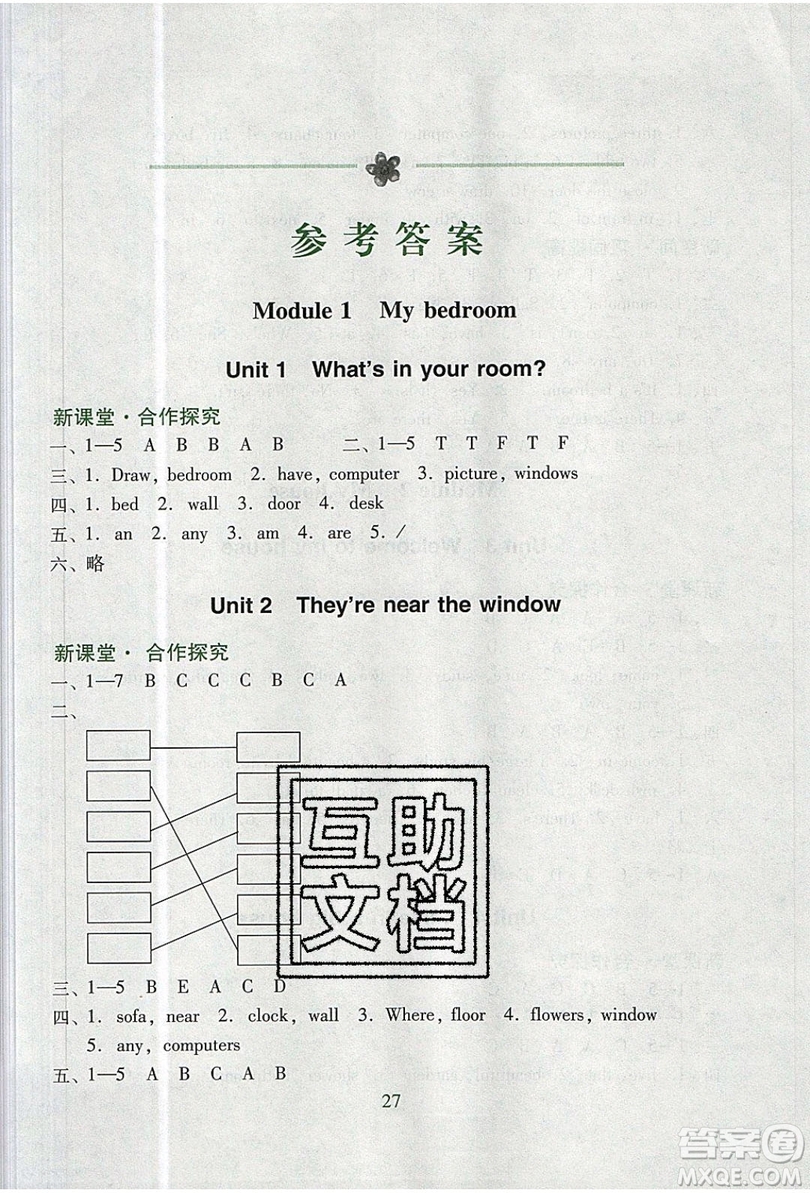 参考答案
Module 1 My bedroom
Unit 1 What's in your room?
新课堂·合作探究
一、1—5 A B B A B 二、1—5 T T F T F
三、1. Draw, bedroom 2. have, computer 3. picture, windows
四、1. bed 2. wall 3. door 4. desk
五、1. an 2. any 3. am 4. are 5. /
六、略
Unit 2 They're near the window
新课堂· 合作探究
一、1—7 B C C C B C A
二、
互助
文档
三、1—5 B E A C D
四、1. sofa, near 2. clock, wall 3. Where, floor 4. flowers, window
5. any, computers
五、1—5 A B C A B
27
答案圈
MXQE.COM